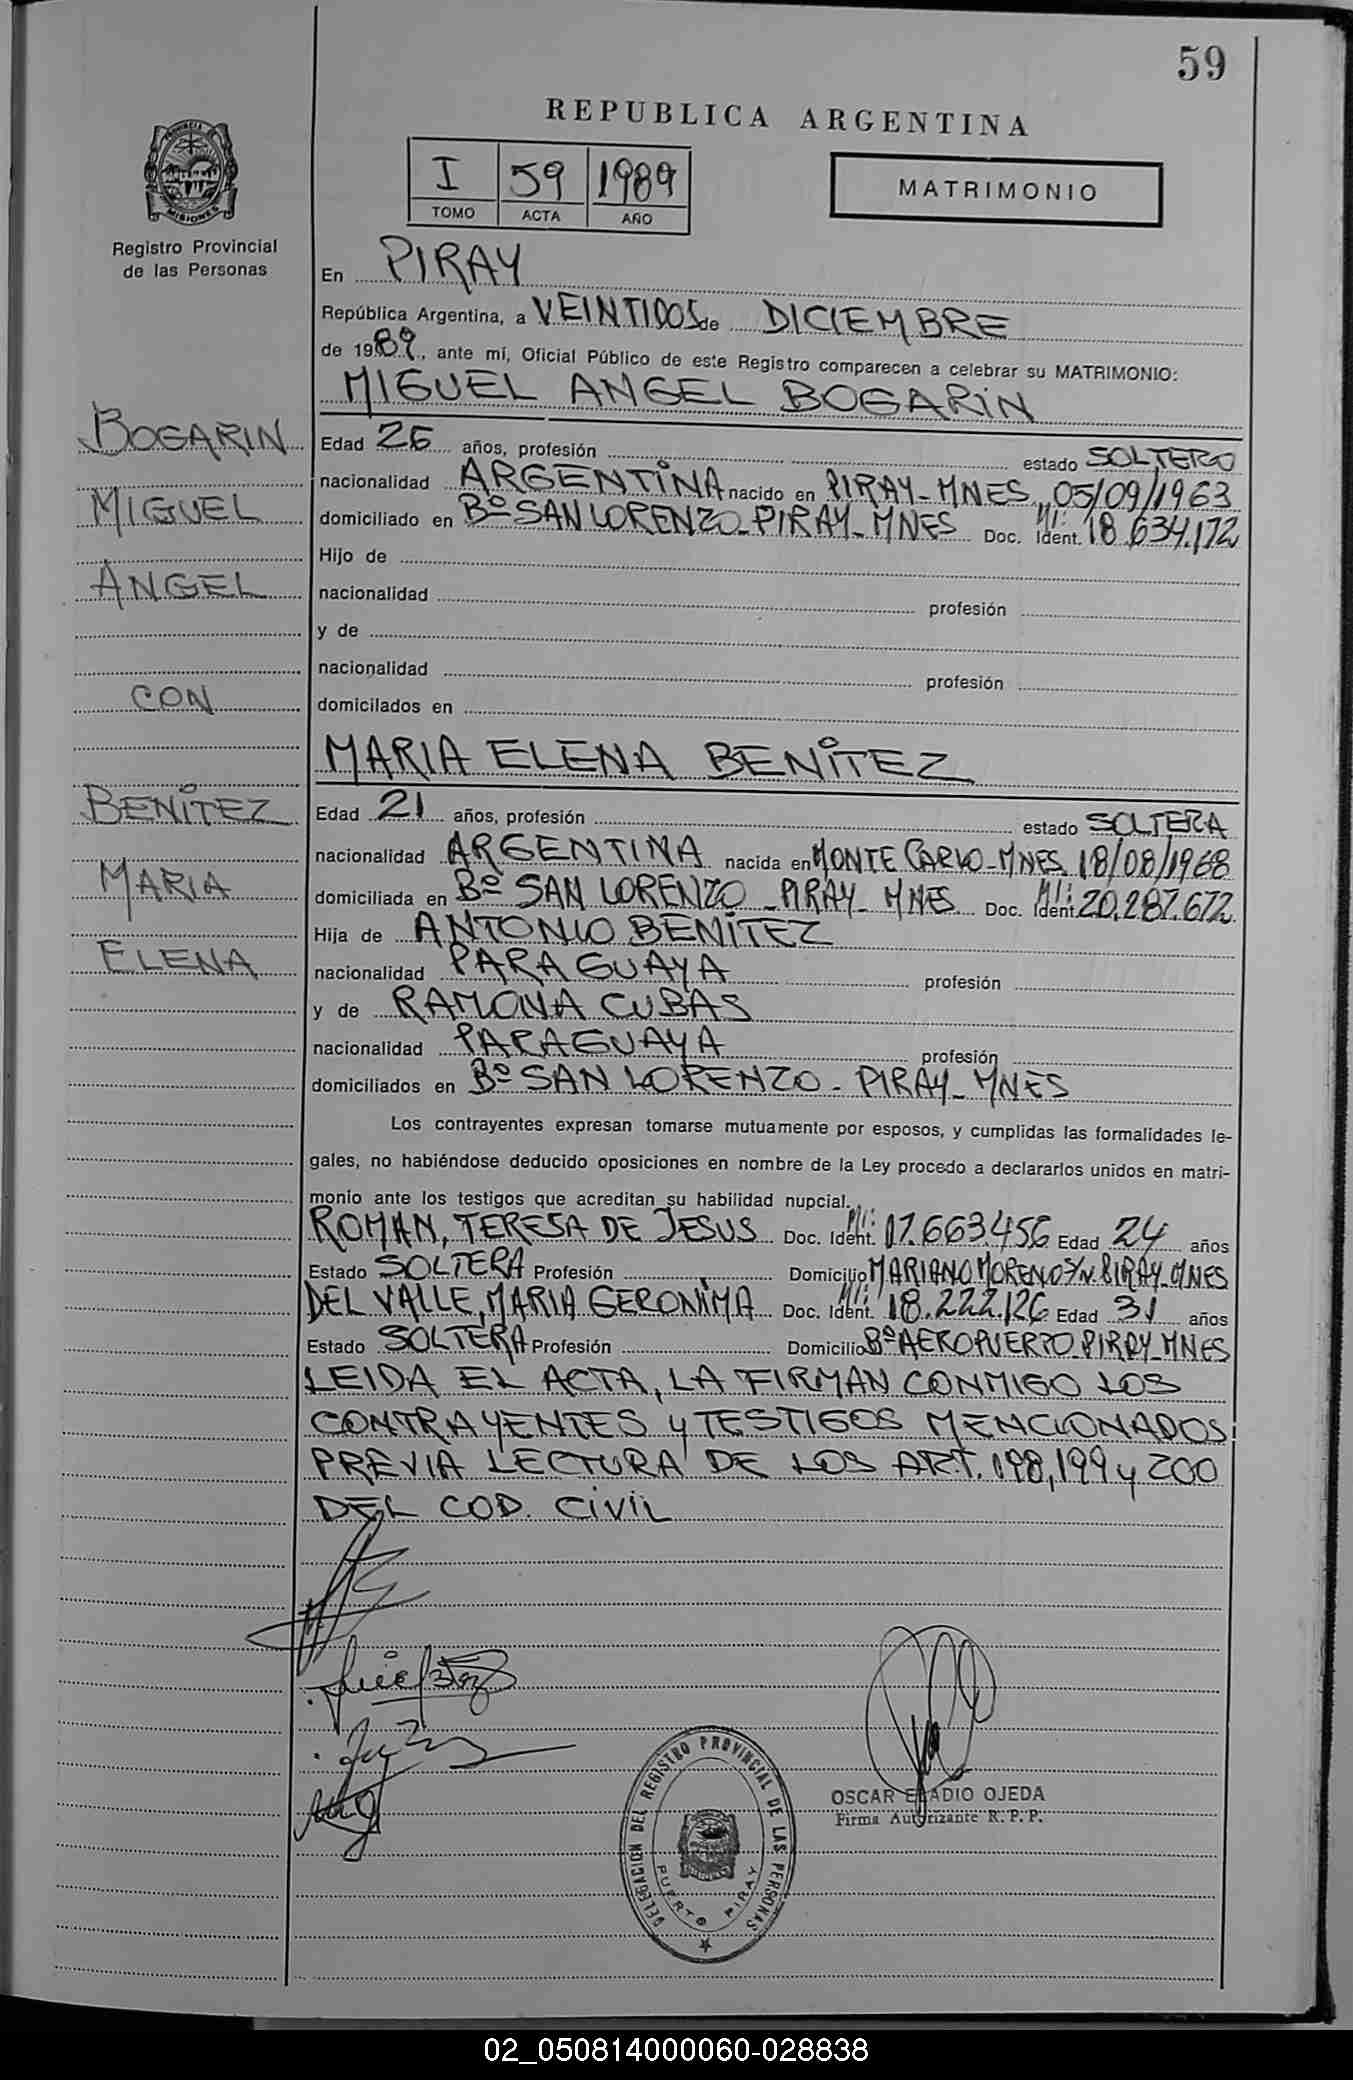 59
REPUBLICA ARGENTINA
I 59 1989
TOMO ACTA AÑO
MATRIMONIO
PROVINCIA DE MISIONES
Registro Provincial
de las Personas
En PIRAY
República Argentina, a VEINTIDOS de DICIEMBRE
de 1989, ante mí, Oficial Público de este Registro comparecen a celebrar su MATRIMONIO:
MIGUEL ANGEL BOGARIN
BOGARIN
MIGUEL
ANGEL
CON
BENITEZ
MARIA
ELENA
Edad 26 años, profesión estado SOLTERO
nacionalidad ARGENTINA nacido en PIRAY-MNES, 05/09/1963
domiciliado en Bº SAN LORENZO-PIRAY-MNES Doc. Ident. M.I: 18.634.172
Hijo de
nacionalidad profesión
y de
nacionalidad profesión
domicilados en
MARIA ELENA BENITEZ
Edad 21 años, profesión estado SOLTERA
nacionalidad ARGENTINA nacida en MONTE CARLO-MNES, 18/08/1968
domiciliada en Bº SAN LORENZO-PIRAY-MNES Doc. Ident. M.I: 20.287.672
Hija de ANTONIO BENITEZ
nacionalidad PARAGUAYA profesión
y de RAMONA CUBAS
nacionalidad PARAGUAYA profesión
domiciliados en Bº SAN LORENZO-PIRAY-MNES
Los contrayentes expresan tomarse mutuamente por esposos, y cumplidas las formalidades le-
gales, no habiéndose deducido oposiciones en nombre de la Ley procedo a declararlos unidos en matri-
monio ante los testigos que acreditan su habilidad nupcial.
ROMAN, TERESA DE JESUS Doc. Ident. M.I: 17.663.456 Edad 24 años
Estado SOLTERA Profesión Domicilio MARIANO MORENO S/N. PIRAY-MNES
DEL VALLE, MARIA GERONIMA Doc. Ident. M.I: 18.222.126 Edad 31 años
Estado SOLTERA Profesión Domicilio Bº AEROPUERTO-PIRAY-MNES
LEIDA EL ACTA, LA FIRMAN CONMIGO LOS
CONTRAYENTES y TESTIGOS MENCIONADOS
PREVIA LECTURA DE LOS ART. 198, 199 y 200
DEL COD. CIVIL
DELEGACION DEL REGISTRO PROVINCIAL DE LAS PERSONAS
PUERTO PIRAY
OSCAR ELADIO OJEDA
Firma Autorizante R. P. P.
02_050814000060-028838